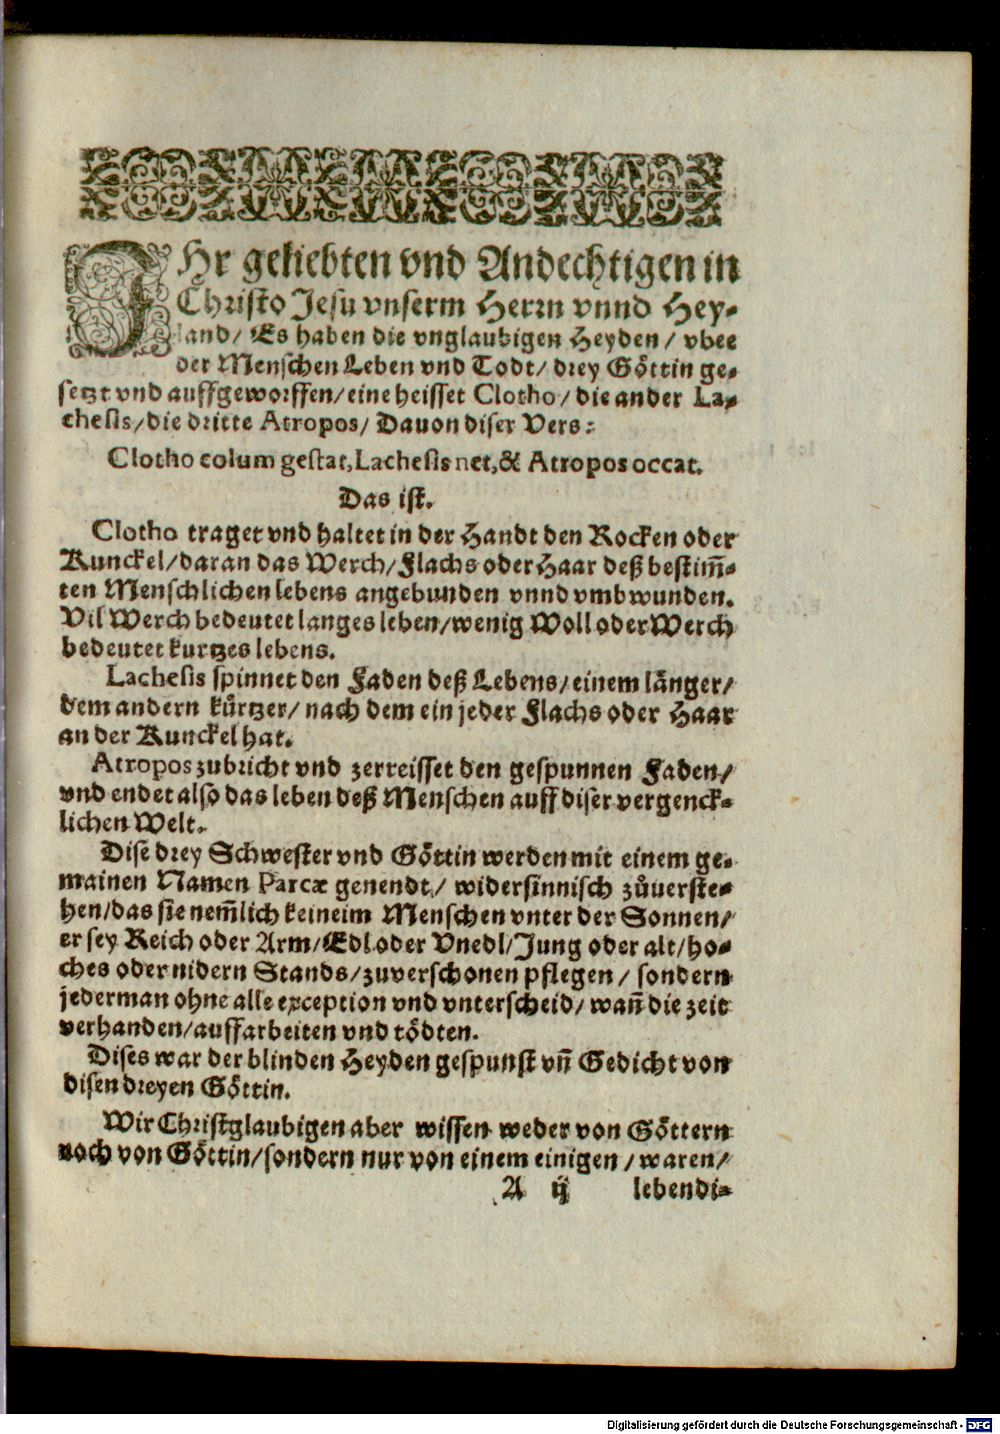 IHr geliebten vnd Andechtigen in
Christo Jesu vnserm Herrn vnnd Hey-
land/ Es haben die vnglaubigen Heyden/ vber
der Menschen Leben vnd Todt/ drey Göttin ge-
setzt vnd auffgeworffen/ eine heisset Clotho/ die ander La-
chesis/ die dritte Atropos/ Dauon diser Vers:
Clotho colum gestat, Lachesis net, & Atropos occat.
Das ist.
Clotho traget vnd haltet in der Handt den Rocken oder
Kunckel/ daran das Werch/ Flachs oder Haar deß bestim̃-
ten Menschlichen lebens angebunden vnnd vmbwunden.
Vil Werch bedeutet langes leben/ wenig Woll oder Werch
bedeutet kurtzes lebens.
Lachesis spinnet den Faden deß Lebens/ einem länger/
dem andern kürtzer/ nach dem ein jeder Flachs oder Haar
an der Kunckel hat.
Atropos zubricht vnd zerreisset den gespunnen Faden/
vnd endet also das leben deß Menschen auff diser vergenck-
lichen Welt.
Dise drey Schwester vnd Göttin werden mit einem ge-
mainen Namen Parcæ genendt/ widersinnisch zůuerste-
hen/ das sie nem̃lich keineim Menschen vnter der Sonnen/
er sey Reich oder Arm/ Edl oder Vnedl/ Jung oder alt/ ho-
ches oder nidern Stands/ zuverschonen pflegen/ sondern
jederman ohne alle exception vnd vnterscheid/ wañ die zeit
verhanden/ auffarbeiten vnd tödten.
Dises war der blinden Heyden gespunst vñ Gedicht von
disen dreyen Göttin.
Wir Christglaubigen aber wissen weder von Göttern
noch von Göttin/ sondern nur von einem einigen/ waren/
A ij lebendi-
Digitalisierung gefördert durch die Deutsche Forschungsgemeinschaft - DFG